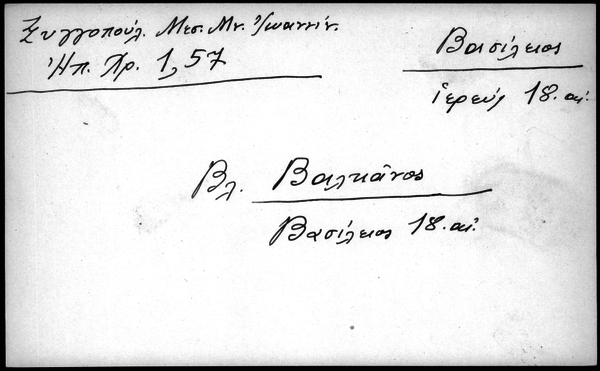 Ξυγγοπούλ. Μεσ. Μν. Ἰωαννίν.
Ἠπ. Χρ. 1, 57
Βασίλειος
ἱερεύς 18. αἰ.
Βλ. Βαλκᾶνος
Βασίλειος 18. αἰ.